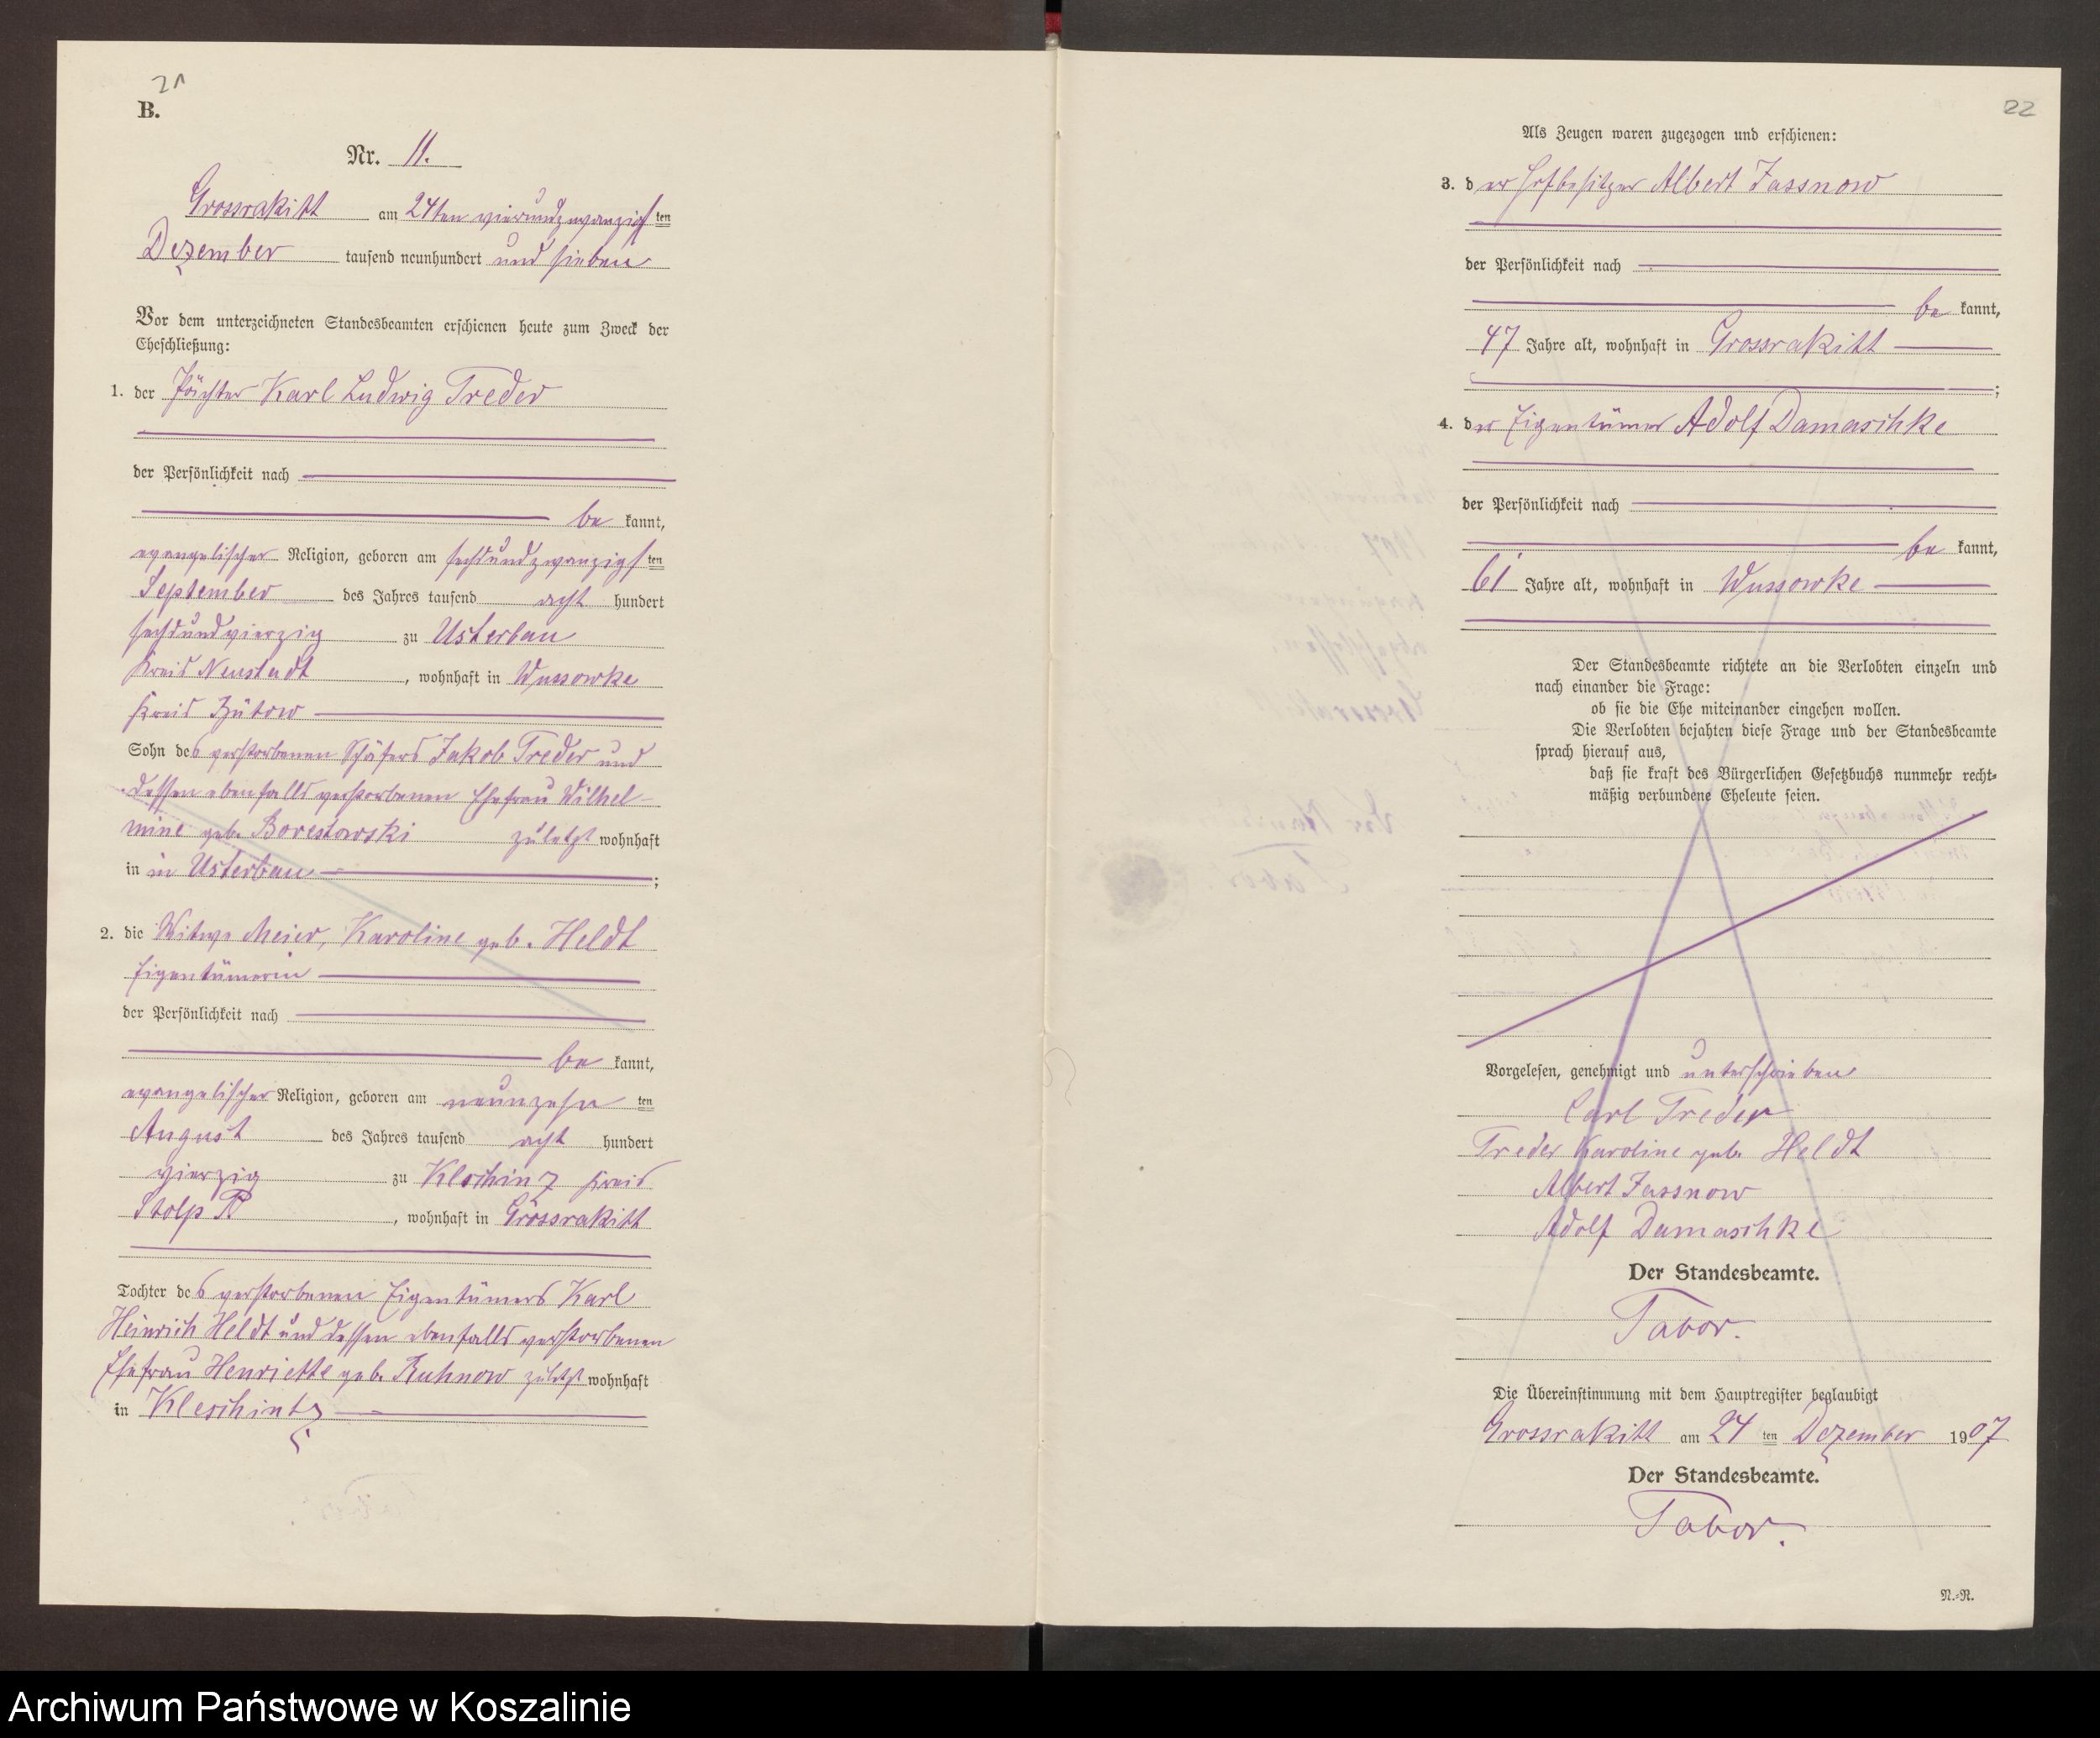 21
B.
Nr. 11.
Grossrakitt am 24ten vierundzwanzigsten
Dezember tausend neunhundert und sieben
Vor dem unterzeichneten Standesbeamten erschienen heute zum Zweck der
Eheschließung:
1. der Pächter Karl Ludwig Treder
der Persönlichkeit nach
be kannt,
evangelischer Religion, geboren am sechsundzwanzigsten
September des Jahres tausend acht hundert
sechsundvierzig zu Usterbau
Kreis Neustadt, wohnhaft in Wussowke
Kreis Bütow
Sohn des verstorbenen Schäfers Jakob Treder und
dessen ebenfalls verstorbenen Ehefrau Wilhel-
mine geb. zuletzt wohnhaft
in in Usterbau;
2. die Witwe Meier, Karoline geb. Heldt
Eigentümerin
der Persönlichkeit nach
be kannt,
evangelischer Religion, geboren am neunzehn ten
August des Jahres tausend acht hundert
vierzig zu Kleschinz Kreis
Stolp P, wohnhaft in Grossrakitt
Tochter des verstorbenen Eigentümers Karl
Heinrich Heldt und dessen ebenfalls verstorbenen
Ehefrau Henriette geb. Ruhnow zuletzt wohnhaft
in Kleschintz
22
Als Zeugen waren zugezogen und erschienen:
3. der Hofbesitzer Albert Jassnow
der Persönlichkeit nach
be kannt,
47 Jahre alt, wohnhaft in Grossrakitt
;
4. der Eigentümer Adolf Damaschke
der Persönlichkeit nach
be kannt,
61 Jahre alt, wohnhaft in Wussowke
Der Standesbeamte richtete an die Verlobten einzeln und
nach einander die Frage:
ob sie die Ehe miteinander eingehen wollen.
Die Verlobten bejahten diese Frage und der Standesbeamte
sprach hierauf aus,
daß sie kraft des Bürgerlichen Gesetzbuchs nunmehr recht-
mäßig verbundene Eheleute seien.
Vorgelesen, genehmigt und unterschrieben
Carl Treder
Treder Karoline geb. Heldt
Albert Jassnow
Adolf Damaschke
Der Standesbeamte.
Tabor.
Die Übereinstimmung mit dem Hauptregister beglaubigt
Grossrakitt am 24 ten Dezember 1907
Der Standesbeamte.
Tabor.
N.-N.
Archiwum Państwowe w Koszalinie